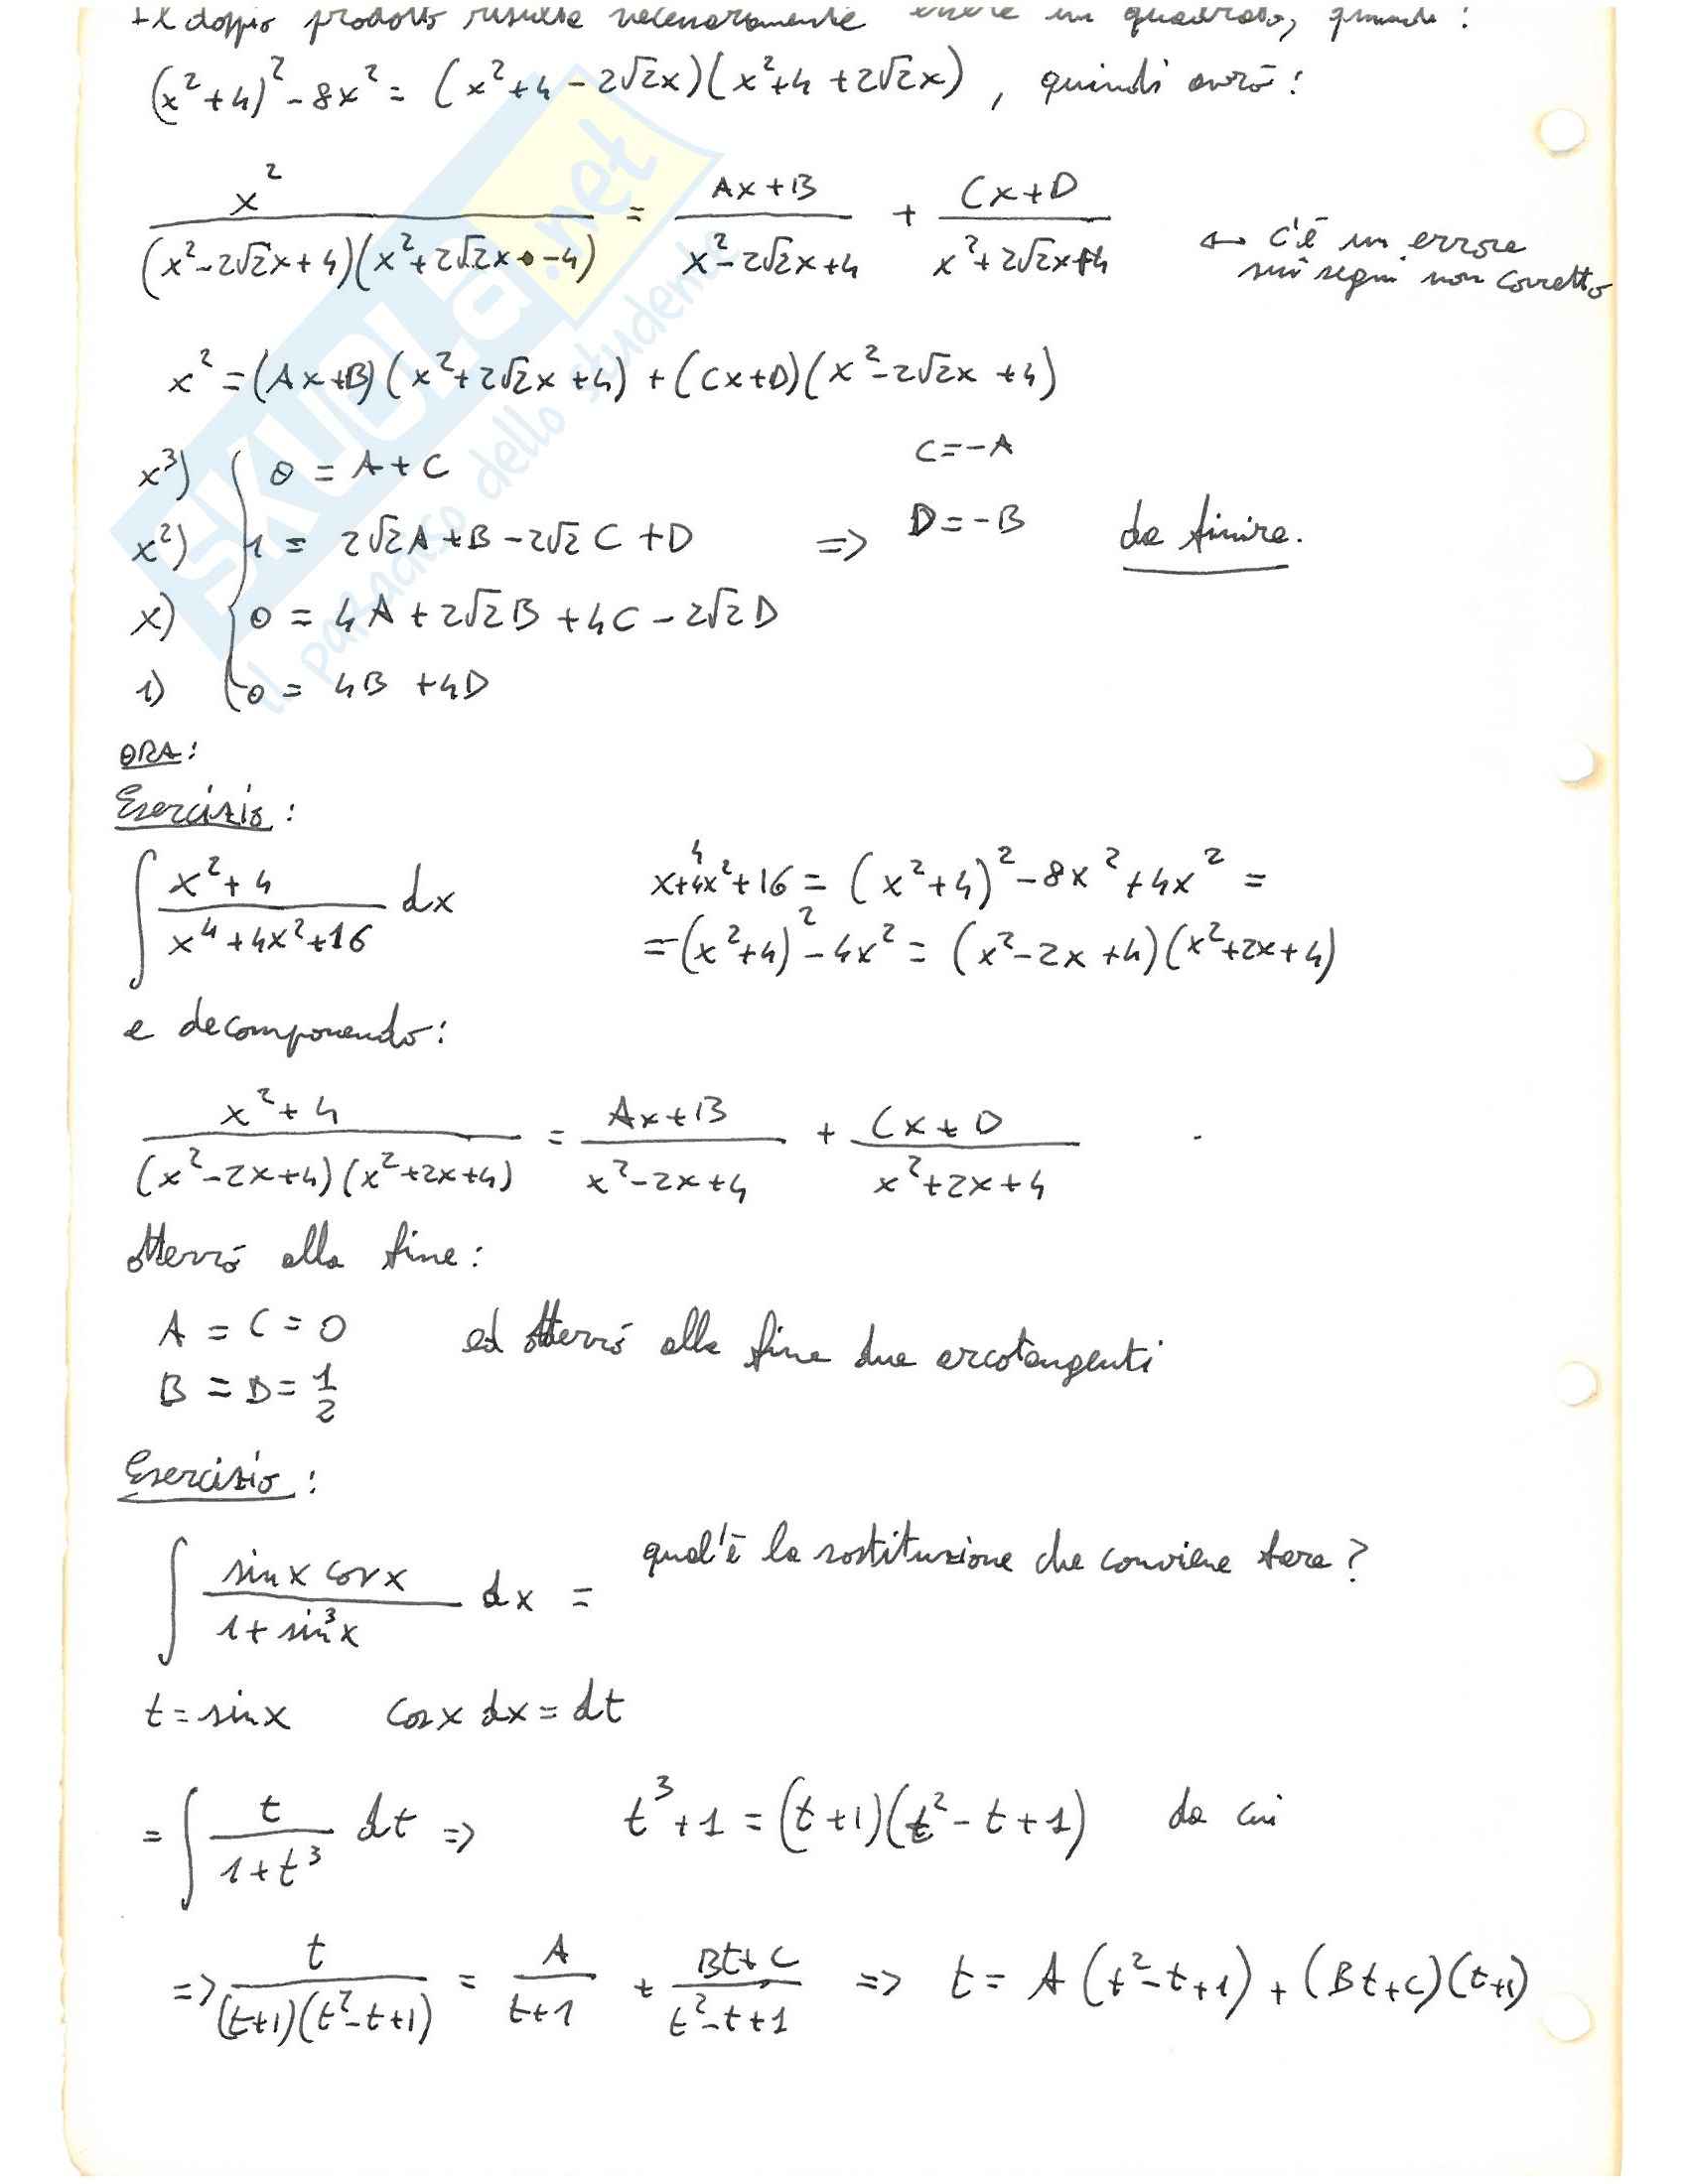 Il doppio prodotto risulta necessariamente essere un quadrato, quindi:
(x²+4)² - 8x² = (x²+4 - 2√2x)(x²+4 + 2√2x) , quindi avrò:
x² / (x²-2√2x+4)(x²+2√2x -4) = Ax+B / x²-2√2x+4 + Cx+D / x²+2√2x+4 ↔ c'è un errore
sui segni non corretto
x² = (Ax+B)(x²+2√2x+4) + (Cx+D)(x²-2√2x+4)
x³) 0 = A+C C=-A
x²) 1 = 2√2A+B-2√2C+D => D=-B da finire.
x) 0 = 4A+2√2B+4C-2√2D
1) 0 = 4B +4D
ORA:
Esercizio:
∫ x²+4 / x⁴+4x²+16 dx x⁴+4x²+16 = (x²+4)²-8x²+4x² =
= (x²+4)²-4x² = (x²-2x+4)(x²+2x+4)
e decomponendo:
x²+4 / (x²-2x+4)(x²+2x+4) = Ax+B / x²-2x+4 + Cx+D / x²+2x+4
otterrò alla fine:
A = C = 0 ed otterrò alla fine due arcotangenti
B = D = 1/2
Esercizio:
∫ sinx cosx / 1+sin³x dx = qual'è la sostituzione che conviene fare?
t = sinx cosx dx = dt
= ∫ t / 1+t³ dt => t³+1 = (t+1)(t²-t+1) da cui
=> t / (t+1)(t²-t+1) = A / t+1 + Bt+C / t²-t+1 => t = A(t²-t+1) + (Bt+C)(t+1)
SKUOLA.net
il paradiso dello studente